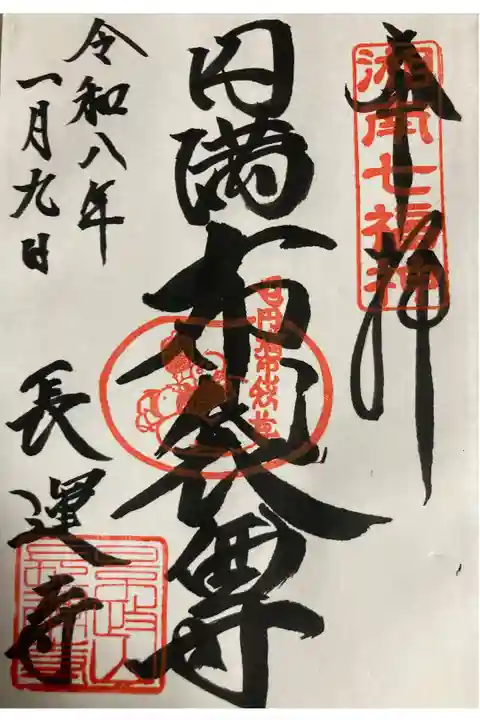 奉拝
湘南七福神
円満布袋尊
令和八年
一月九日
長運寺